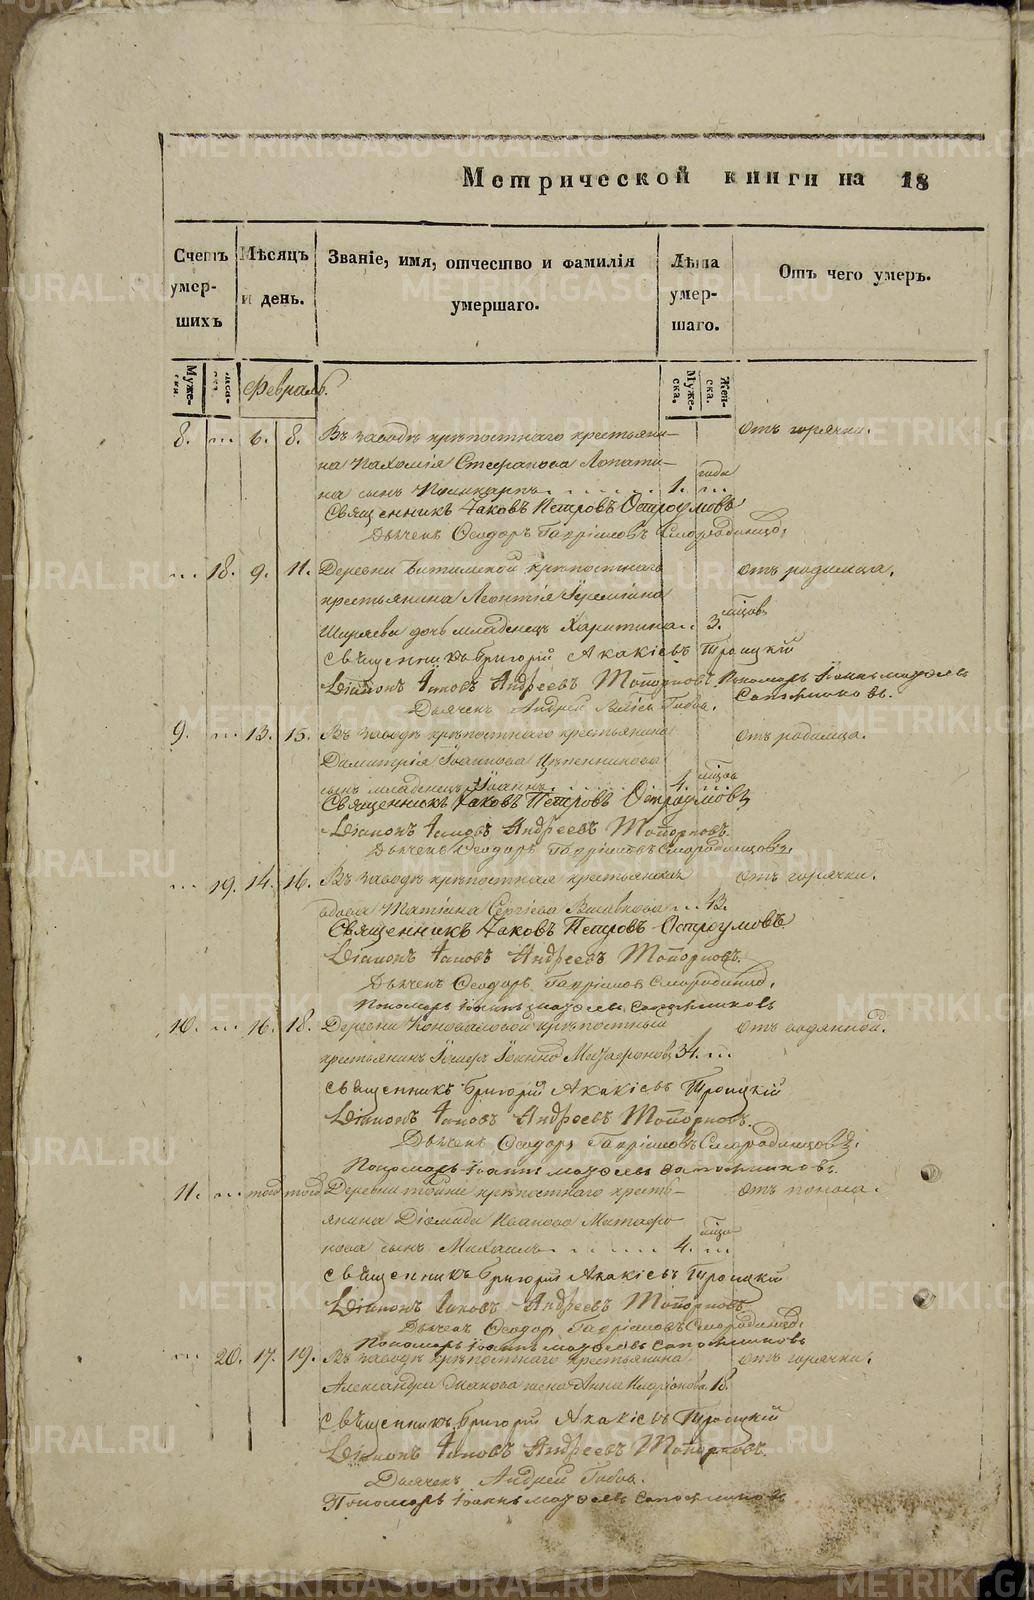 Метрической книги на 18
Счетъ умер-шихъ
Мѣсяцъ и день.
Званіе, имя, отчество и фамилія умершаго.
Лѣта умер-шаго.
Отъ чего умеръ.
Муже-ска. Женска.
Февраль.
Муже-ска. Жен-ска.
8. ... 6. 8. Въ заводѣ крѣпостнаго крестьяни- Отъ горячки.
на Пахомія Стефанова Лопати- года
на сынъ Поликарпъ 1. ...
Священникъ Іаковъ Петровъ Остроумовъ
Дьячекъ Ѳеодоръ Гавріиловъ Смородинцовъ.
... 18. 9. 11. Деревни Битимской крѣпостнаго отъ родимца.
крестьянина Леонтія Іереміина мѣсяцовъ
Ширяева дочь младенецъ Харитина 3.
Священникъ Григорій Акакіевъ Троицкій
Діаконъ Іаковъ Андреевъ Топорковъ. Пономарь Іоаннъ Матѳеевъ
Дьячекъ Андрей Сапожниковъ.
9. ... 13. 15. Въ заводѣ крѣпостнаго крестьянина отъ родимца.
Димитрія Іоаннова
сынъ младенецъ Іоаннъ 4. ...
Священникъ Іаковъ Петровъ Остроумовъ
Діаконъ Іаковъ Андреевъ Топорковъ.
Дьячекъ Ѳеодоръ Гавріиловъ Смородинцовъ.
... 19. 14. 16. Въ заводѣ крѣпостная крестьянская отъ горячки.
вдова Сергіева ... 73.
Священникъ Іаковъ Петровъ Остроумовъ
Діаконъ Іаковъ Андреевъ Топорковъ.
Дьячекъ Ѳеодоръ Гавріиловъ Смородинцовъ.
Пономарь Іоаннъ Матѳеевъ Сапожниковъ
10. ... 16. 18. Деревни Коноваловой крѣпостный отъ водянной.
крестьянинъ Іоанновъ 34. ...
Священникъ Григорій Акакіевъ Троицкій
Діаконъ Іаковъ Андреевъ Топорковъ.
Дьячекъ Ѳеодоръ Гавріиловъ Смородинцовъ.
Пономарь Іоаннъ Матѳеевъ Сапожниковъ.
11. ... того того Деревни тойже крѣпостнаго кресть- отъ поноса.
янина Діомида Иванова Матафо-
нова сынъ Михаилъ 4. ...
Священникъ Григорій Акакіевъ Троицкій
Діаконъ Іаковъ Андреевъ Топорковъ.
Дьячекъ Ѳеодоръ Гавріиловъ Смородинцовъ.
Пономарь Іоаннъ Матѳеевъ Сапожниковъ
... 20. 17. 19. Въ заводѣ крѣпостнаго крестьянина отъ горячки.
Александра жена Анна 18.
Священникъ Григорій Акакіевъ Троицкій
Діаконъ Іаковъ Андреевъ Топорковъ.
Дьячекъ Андрей
Пономарь Іоаннъ Матѳеевъ Сапожниковъ
METRIKI.GASO-URAL.RU